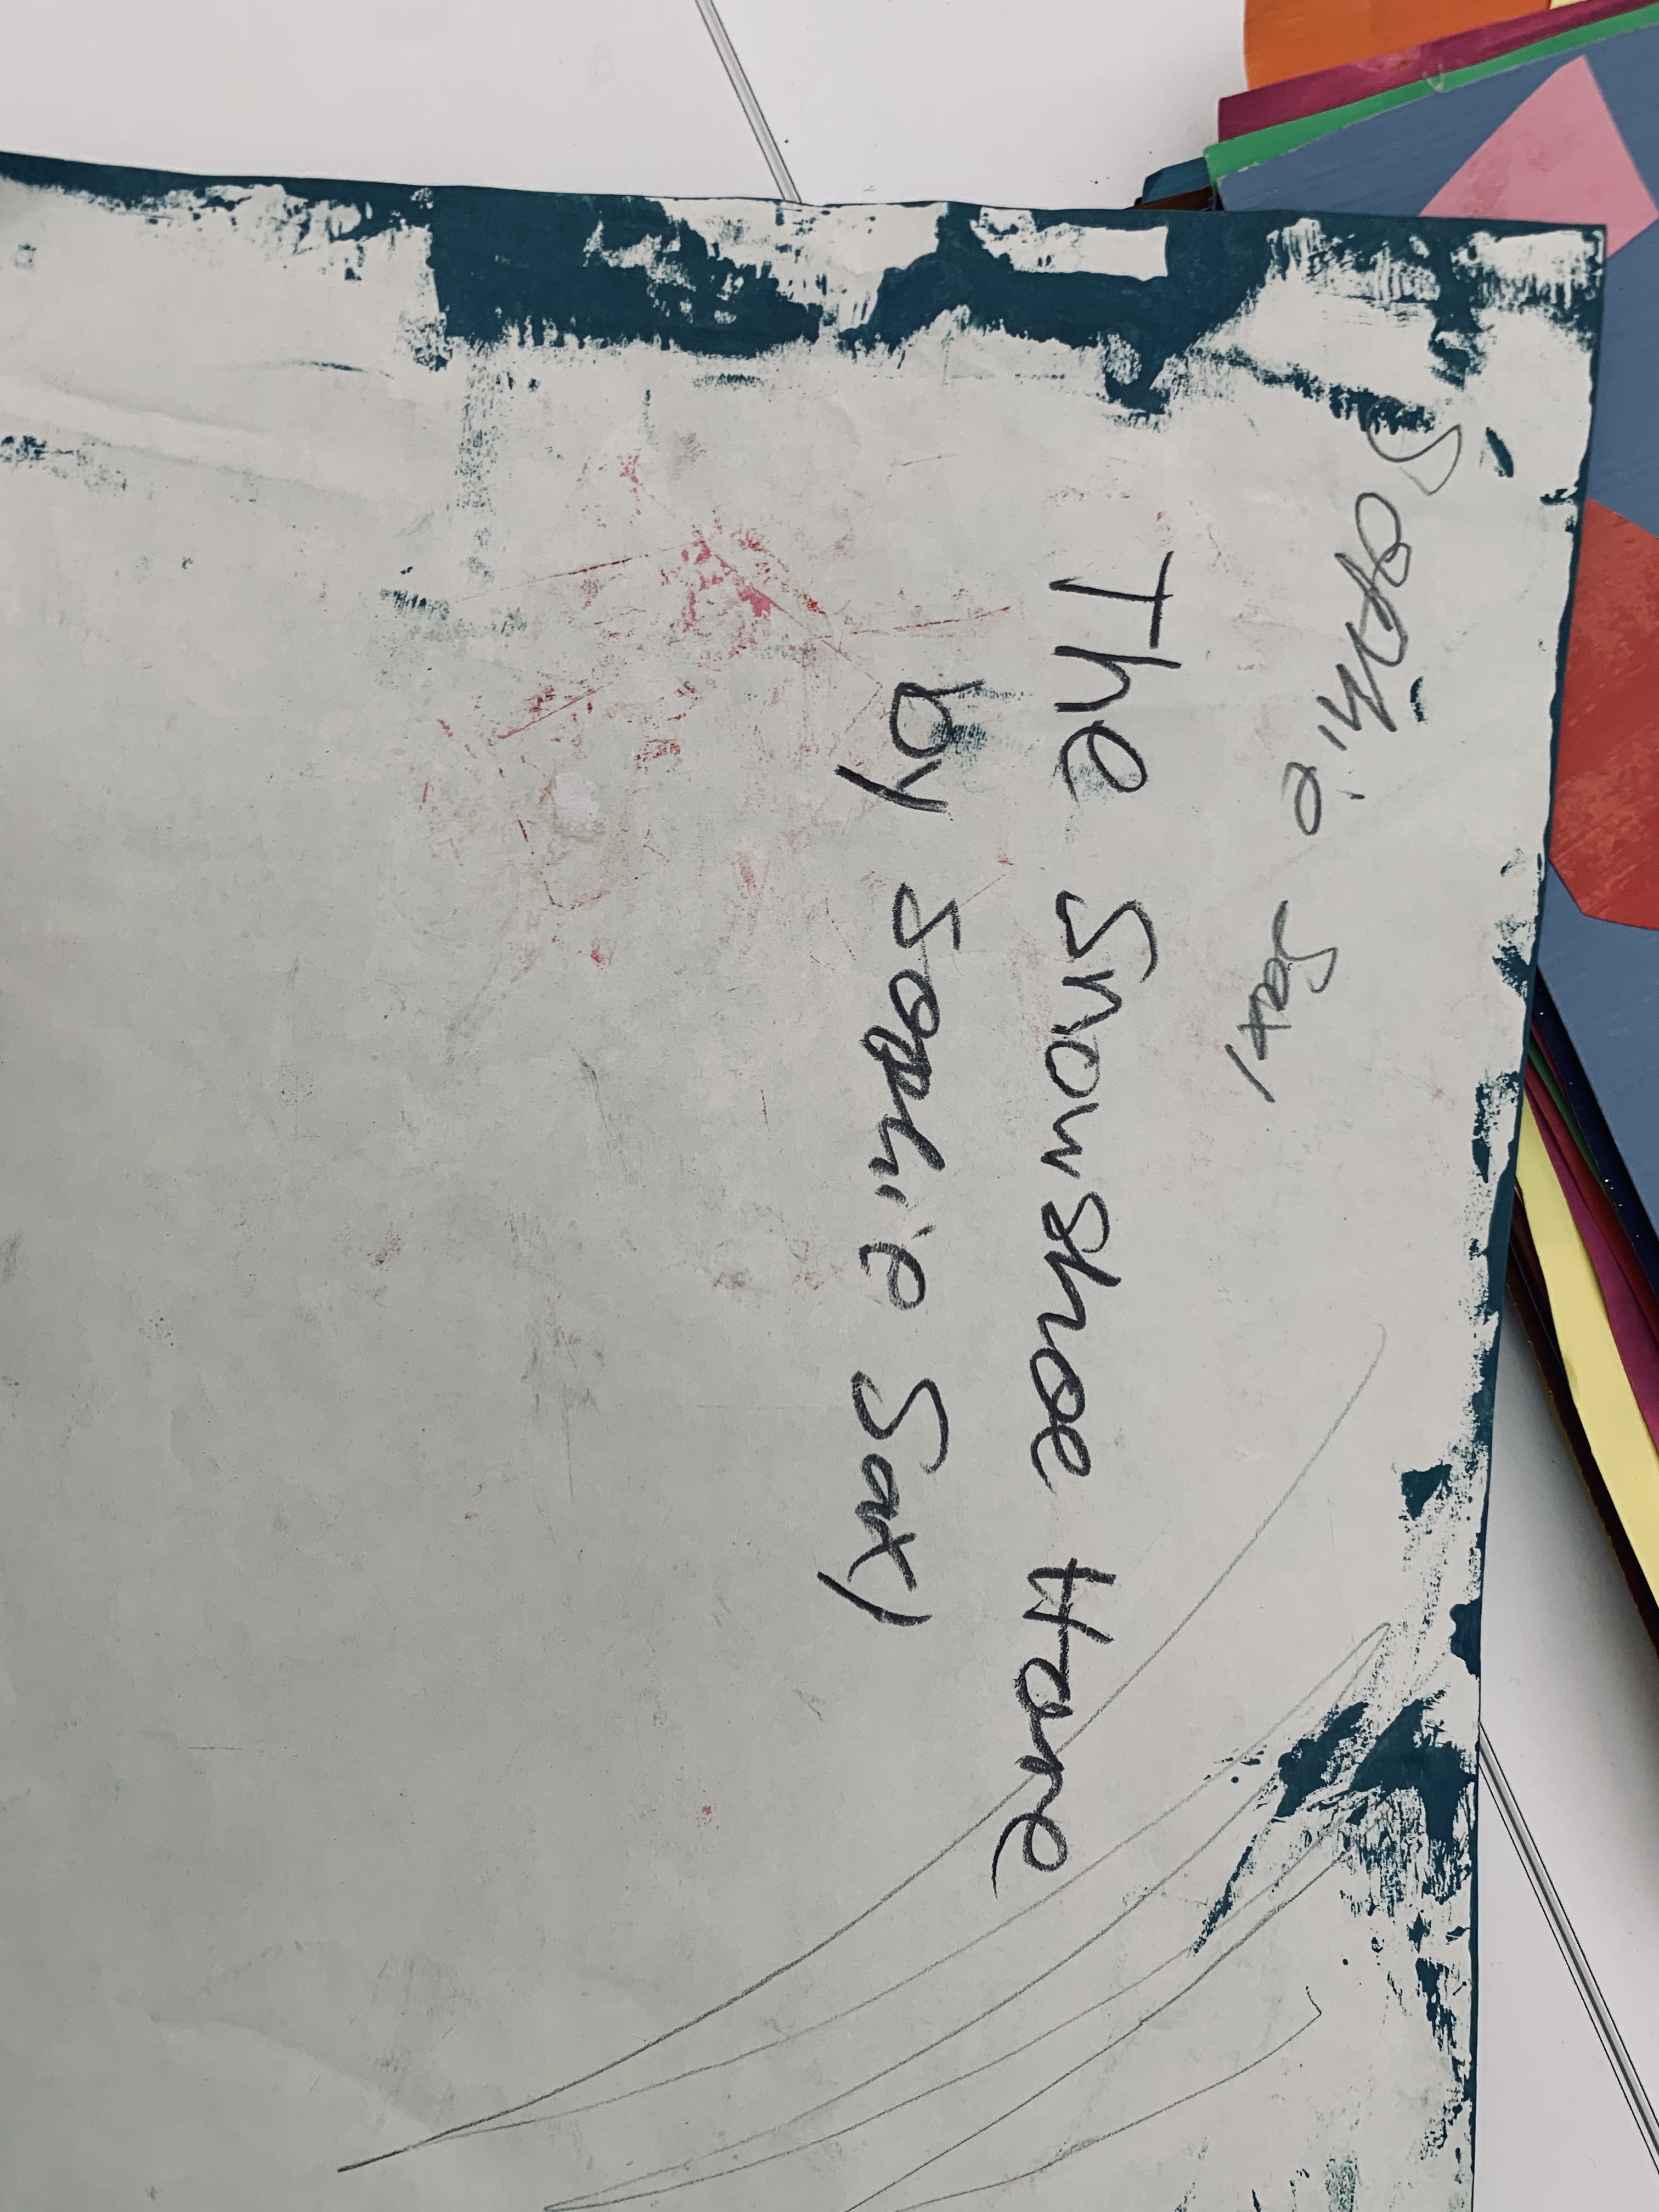 Sophie Sax
The Snowshoe Hare
by Sophie Sax